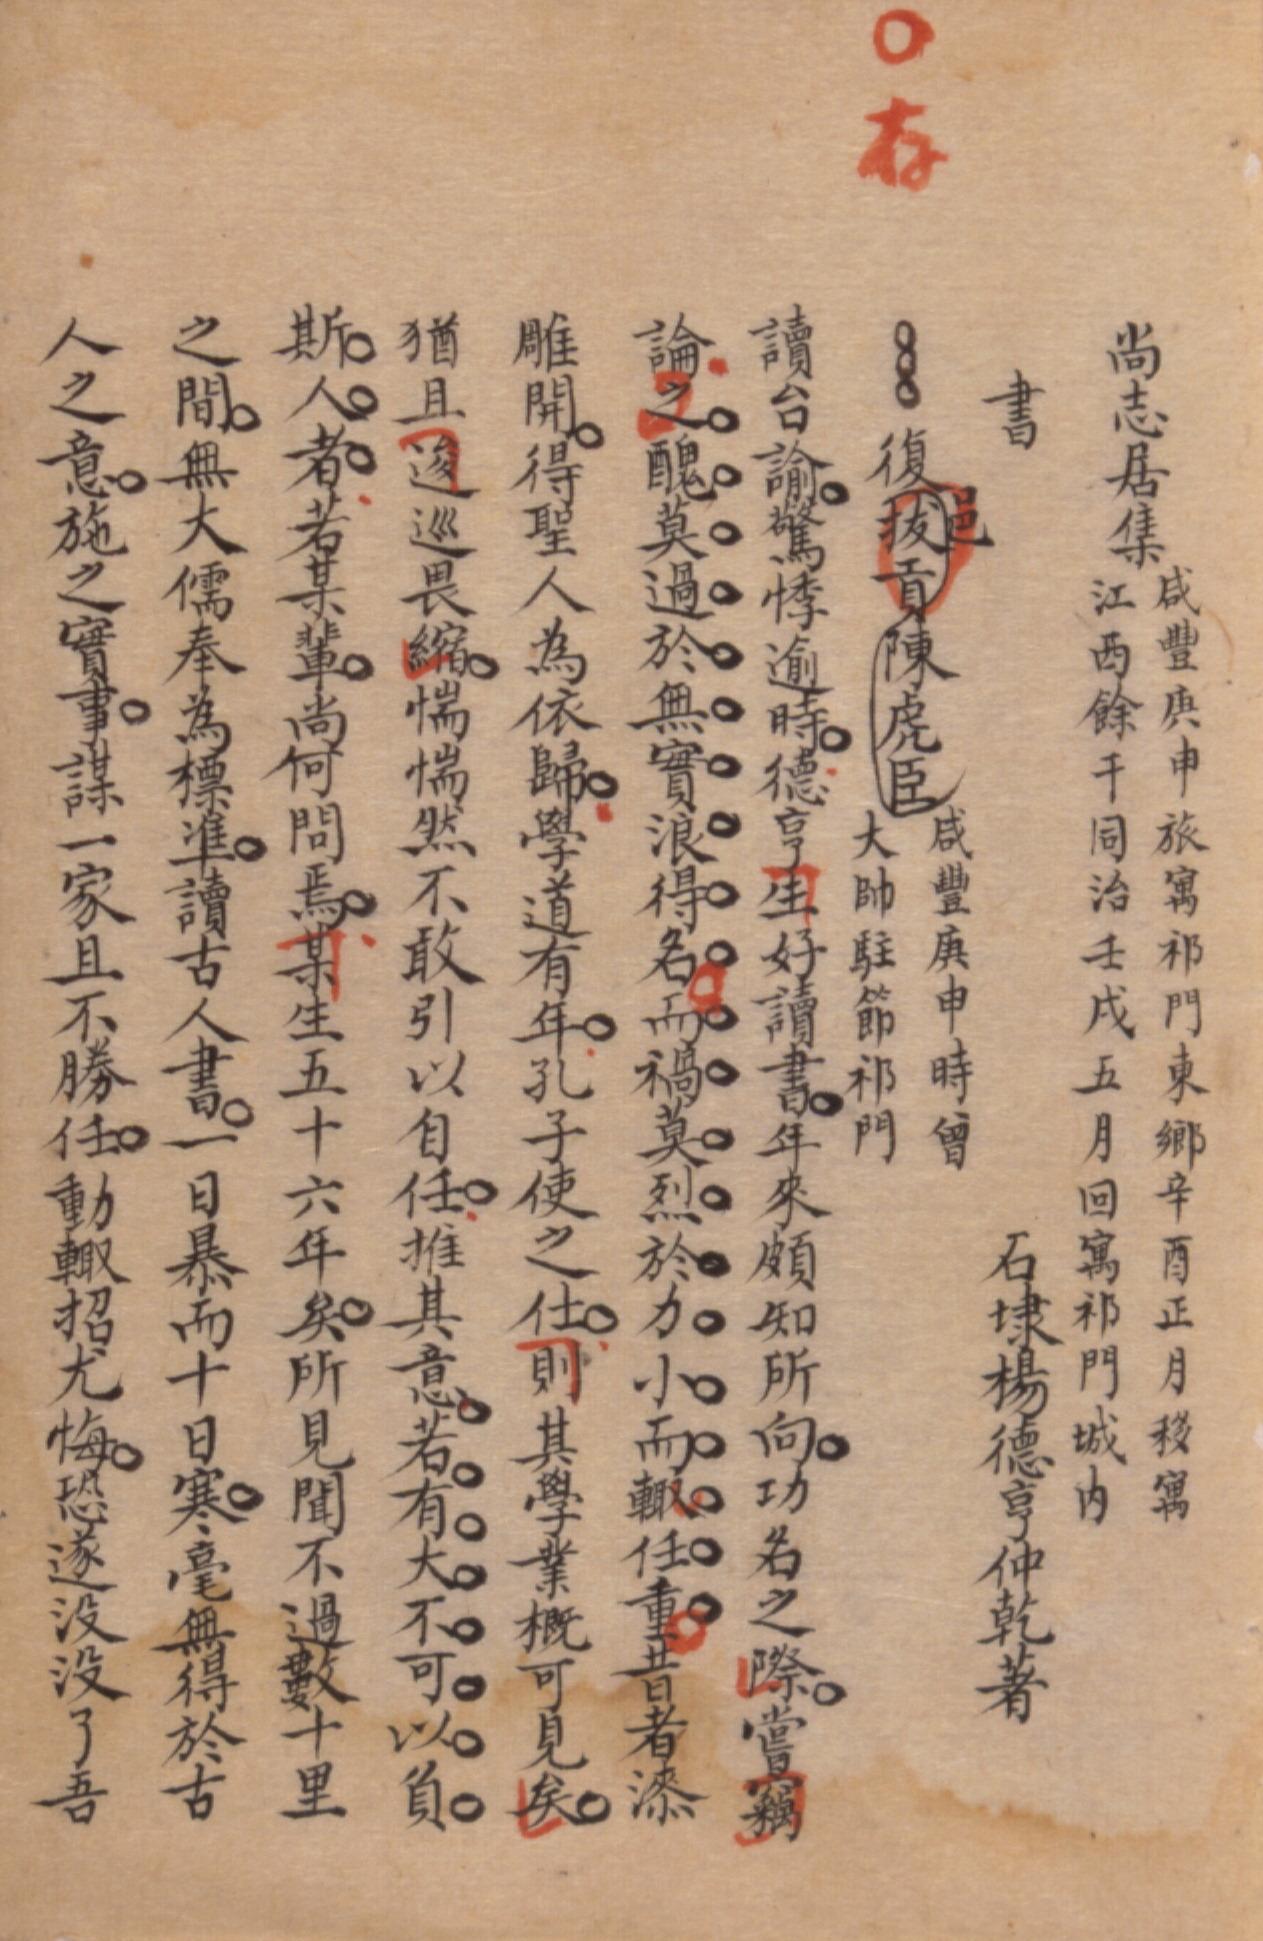 存
尚志居集
咸豐庚申旅寓祁門東鄉辛酉正月移寓
江西餘干同治壬戌五月回寓祁門城內
書
石埭楊德亨仲乾著
復拔貢陳虎臣
邑
咸豐庚申時曾
大帥駐節祁門
讀台諭驚悸逾時德亨生好讀書年來頗知所向功名之際嘗竊
論之醜莫過於無實浪得名而禍莫烈於力小而輙任重昔者漆
雕開得聖人為依歸學道有年孔子使之仕則其學業概可見矣
猶且逡巡畏縮惴惴然不敢引以自任推其意若有大不可以負
斯人者若某輩尚何問焉某生五十六年矣所見聞不過數十里
之間無大儒奉為標準讀古人書一日暴而十日寒毫無得於古
人之意施之實事謀一家且不勝任動輙招尤悔恐遂没没了吾